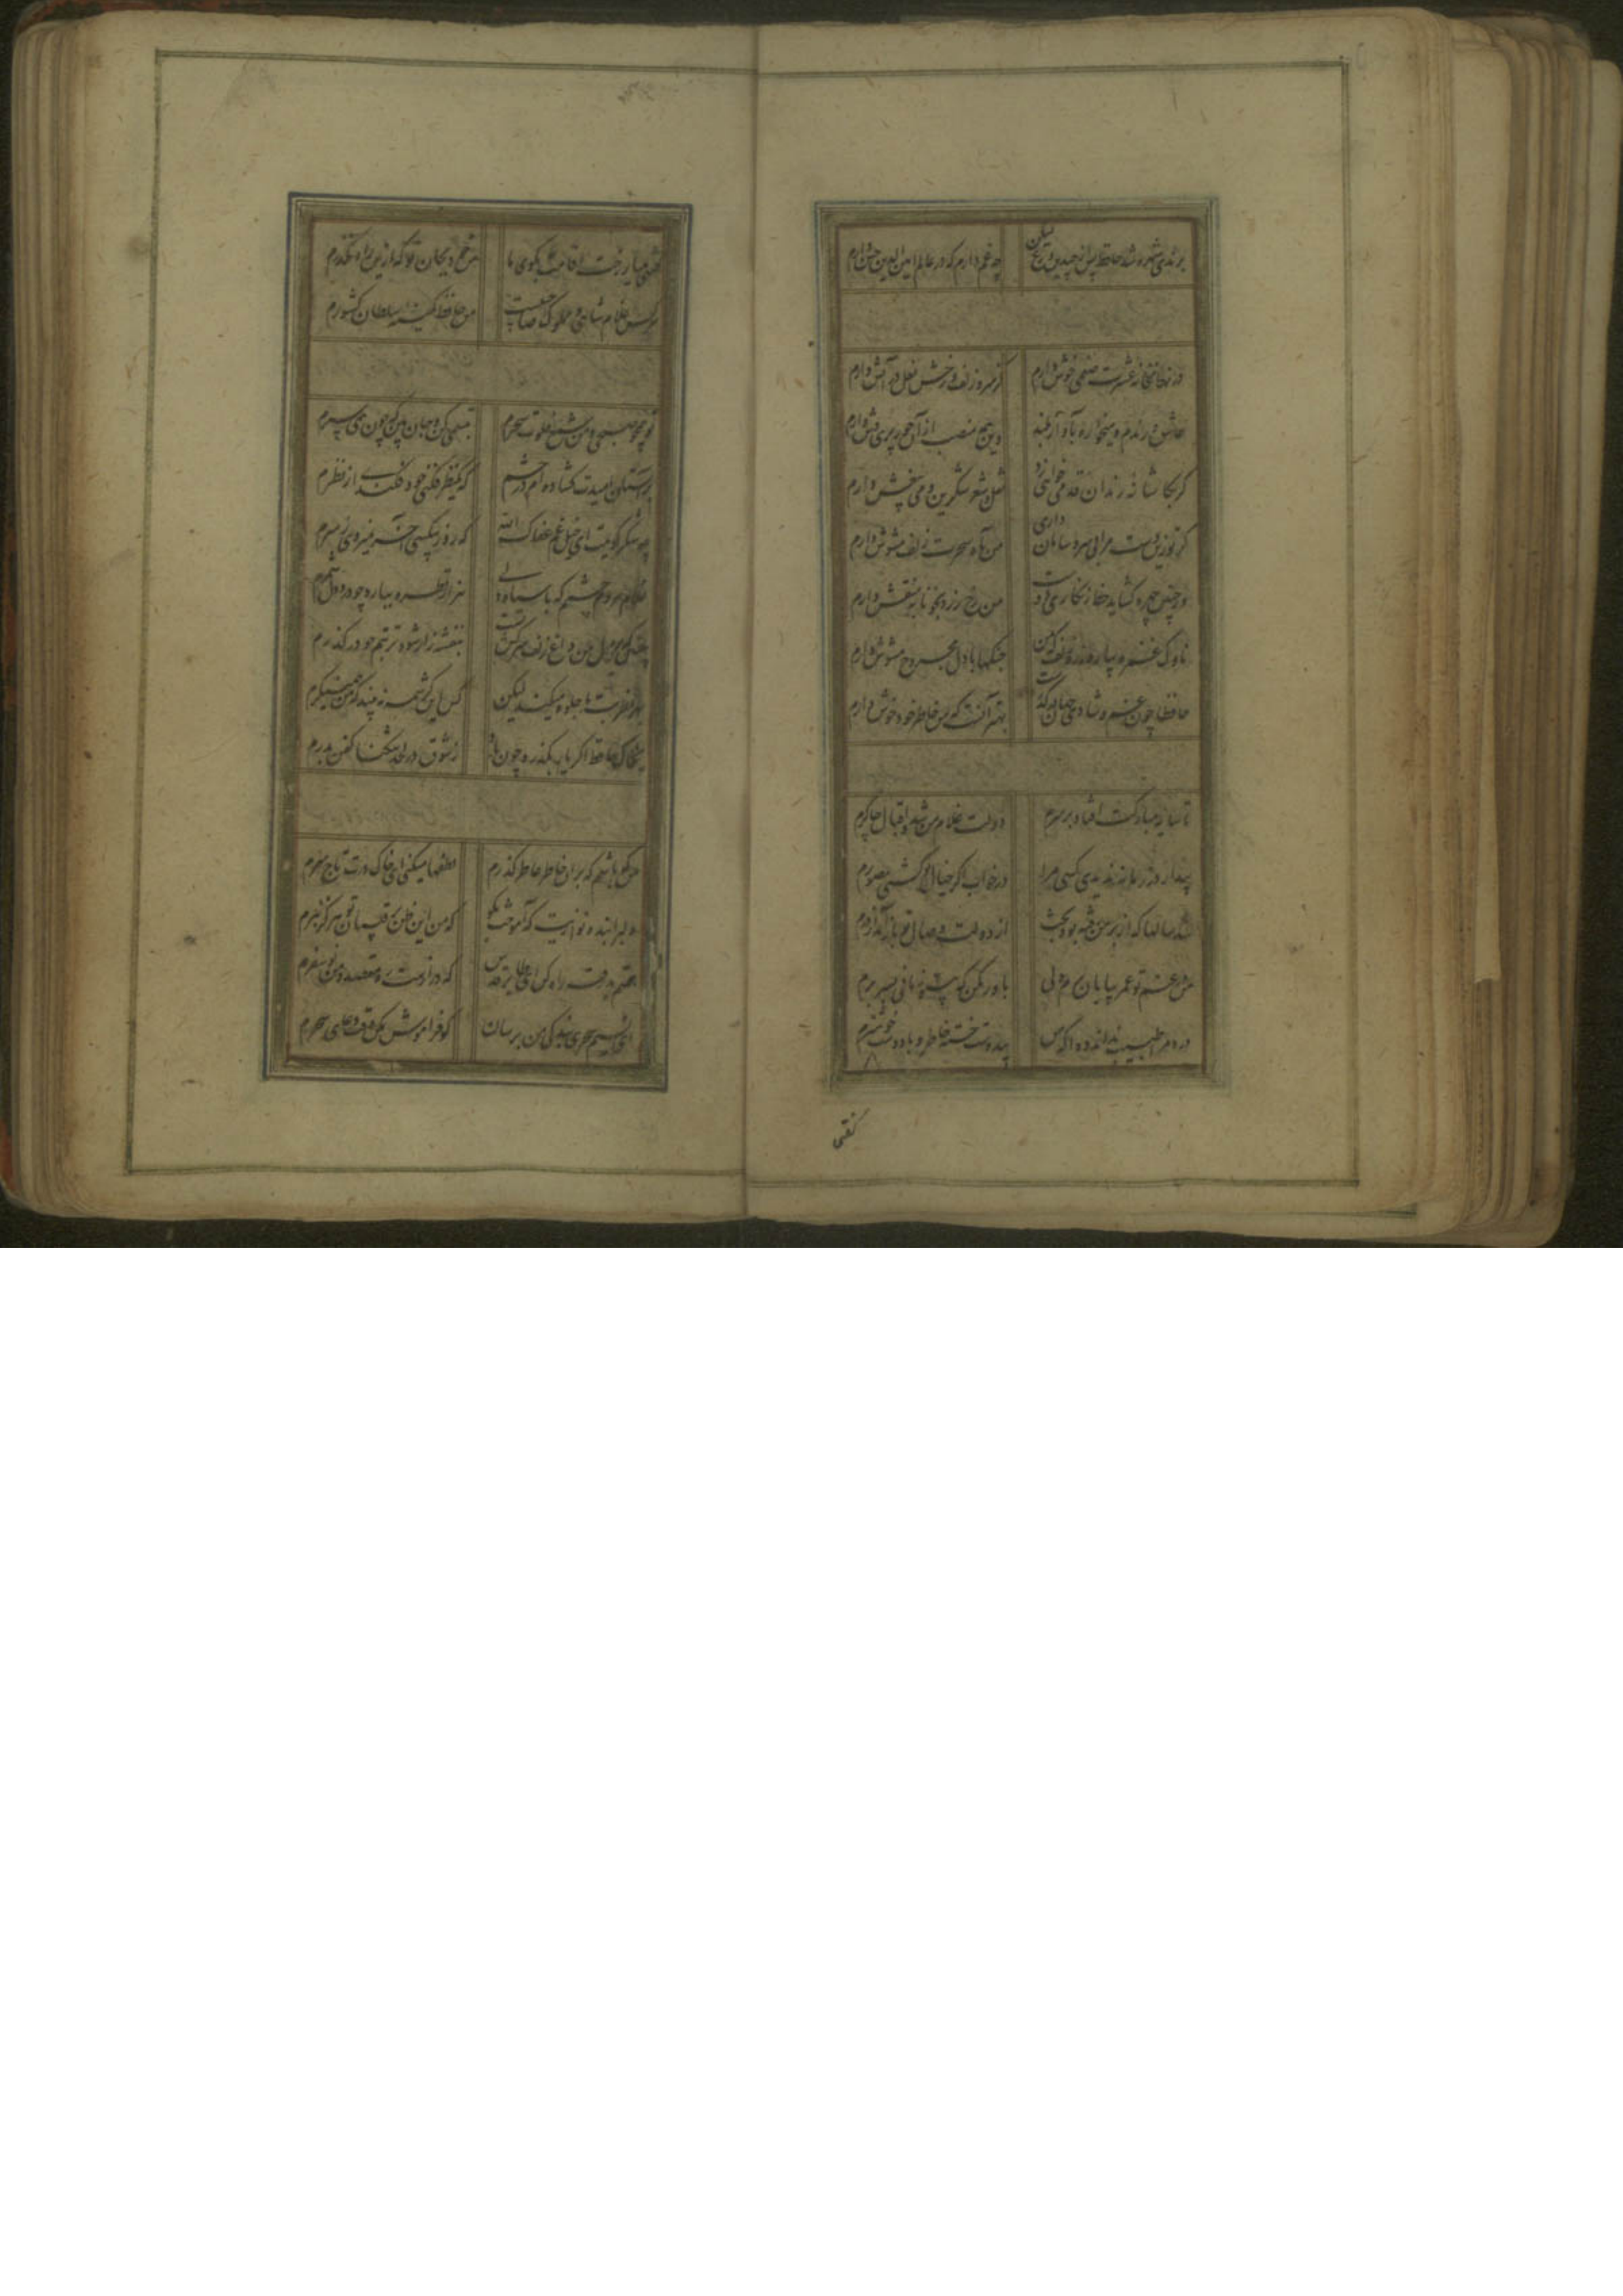 برندی شهره شد حافظ پس از چندین ورع لیکن
چه غم دارم که در عالم امین الدین حسن دارم
در نهانخانه عشرت صنمی خوش دارم
کز سر زلف و رخش نعل در آتش دارم
عاشق و رندم و میخواره بآواز بلند
وین همه منصب از آن حور پریوش دارم
گر بکاشانه رندان قدمی خواهی زد
نقل شعر شکرین و می بیغش دارم
گر تو زین دست مرا بی سر و سامان داری
من بآه سحرت زلف مشوش دارم
ور چنین چهره گشاید خط زنگاری دوست
من رخ زرد بخونابه منقش دارم
ناوک غمزه بیار و زره زلف که من
جنگها با دل مجروح مشوش دارم
حافظا چون غم و شادی جهان در گذرست
بهتر آنست که من خاطر خود خوش دارم
تا سایه مبارکت افتاد بر سرم
دولت غلام من شد و اقبال چاکرم
بیدار در زمانه ندیدی کسی مرا
در خواب اگر خیال تو گشتی مصورم
شد سالها که از بر من رفته بود بخت
از دولت وصال تو باز آمد از درم
من عمر در غم تو بپایان برم ولی
باور مکن که بی تو زمانی بسر برم
درد مرا طبیب نداند دوا که من
بی دوست خسته خاطر و با دوست خوشترم
گفتی
گفتی میار رخت اقامت بکوی ما
من خود بجان تو که ازین راه نگذرم
هر کس غلام شاهی و مملوک صاحبیست
من حافظ کمینه سلطان کشورم
تو همچو صبحی و من شمع خلوت سحرم
تبسمی کن و جان بین که چون همی سپرم
بر آستان امیدت گشاده ام در چشم
که یکنظر فکنی خود فکندی از نظرم
چه شکر گویمت ای خیل غم عفاک الله
که روز بیکسی آخر نمیروی ز سرم
غلام مردم چشمم که با سیاه دلی
هزار قطره ببارد چو درد دل شمرم
چنین که در دل من داغ زلف سرکش تست
بنفشه زار شود تربتم چو در گذرم
بهر نظر بت ما جلوه میکند لیکن
کس این کرشمه نبیند که من همینگرم
بخاک حافظ اگر یار بگذرد چون باد
ز شوق در دل تنگنا کفن بدرم
من که باشم که بر آن خاطر عاطر گذرم
لطفها میکنی ای خاک درت تاج سرم
دلبرا بنده نوازیت که آموخت بگو
که من این ظن برقیبان تو هرگز نبرم
همتم بدرقه راه کن ای طایر قدس
که درازست ره مقصد و من نوسفرم
ای نسیم سحری بندگی من برسان
گو فراموش مکن وقت دعای سحرم